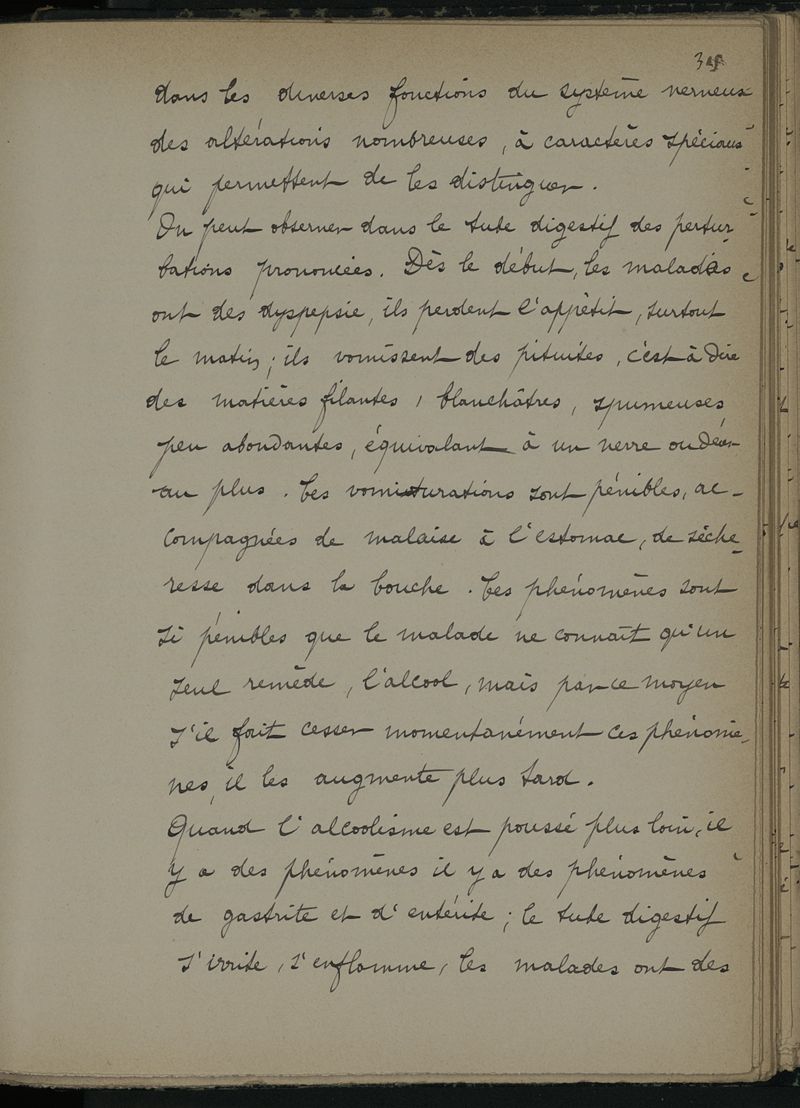 dans les diverses fonctions du système nerveux
des altérations nombreuses, à caractères spéciaux
qui permettent de les distinguer.
On peut observer dans le tube digestif des pertur
bations prononcées. Dès le début, les malades
ont des dyspepsie, ils perdent l'appétit, surtout
le matin ; ils vomissent des pituites, c'est à dire
des matières filantes, blanchâtres, spumeuses
peu abondantes, équivalant à un verre ou deux
au plus. Ces vomiturations sont pénibles, ac-
compagnées de malaise à l'estomac, de sèche-
resse dans la bouche. Ces phénomènes sont
si pénibles que le malade ne connaît qu'un
seul remède, l'alcool, mais par ce moyen
s'il fait cesser momentanément ces phénomè-
nes, il les augmente plus tard.
Quand l'alcoolisme est poussé plus loin, il
y a des phénomènes il y a des phénomènes
de gastrite et d'entérite ; le tube digestif
s'irrite, s'enflamme, les malades ont des